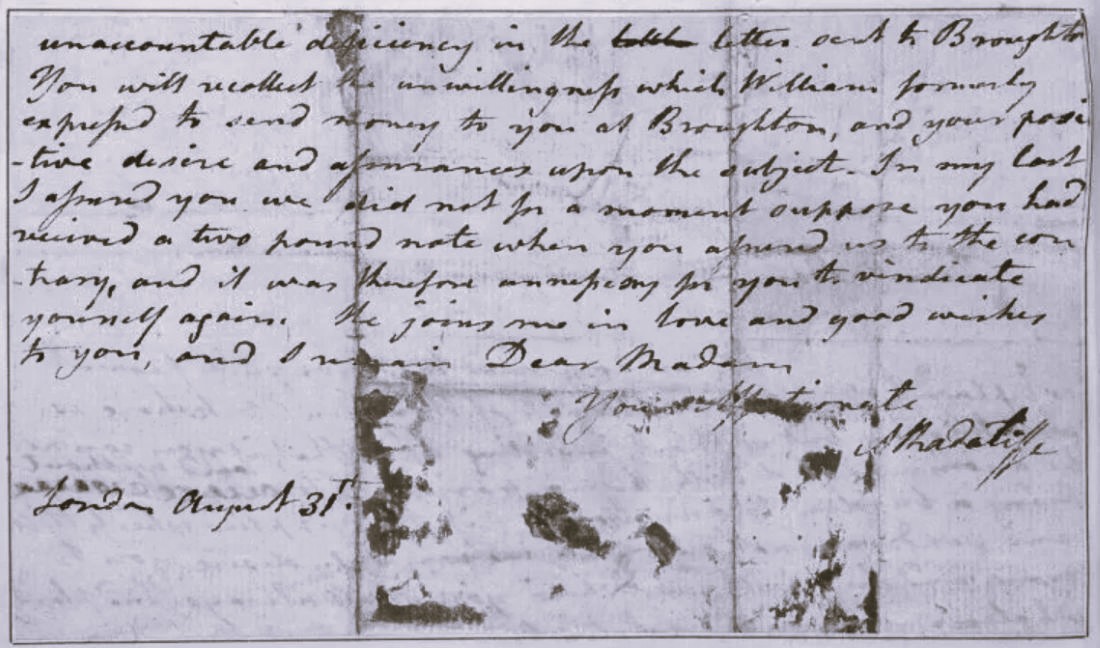 unaccountable deficiency in the letter sent to Broughton
You will recollect the unwillingness which William formerly
expressed to send money to you at Broughton, and your posi
-tive desire and assurances upon the subject. In my last
I assured you we did not for a moment suppose you had
received a two pound note when you assured us to the con
-trary, and it was therefore unnessary for you to vindicate
yourself again. He joins me in love and good wishes
to you, and I remain Dear Madam
Your Affectionate
A Radcliffe
London August 31st.